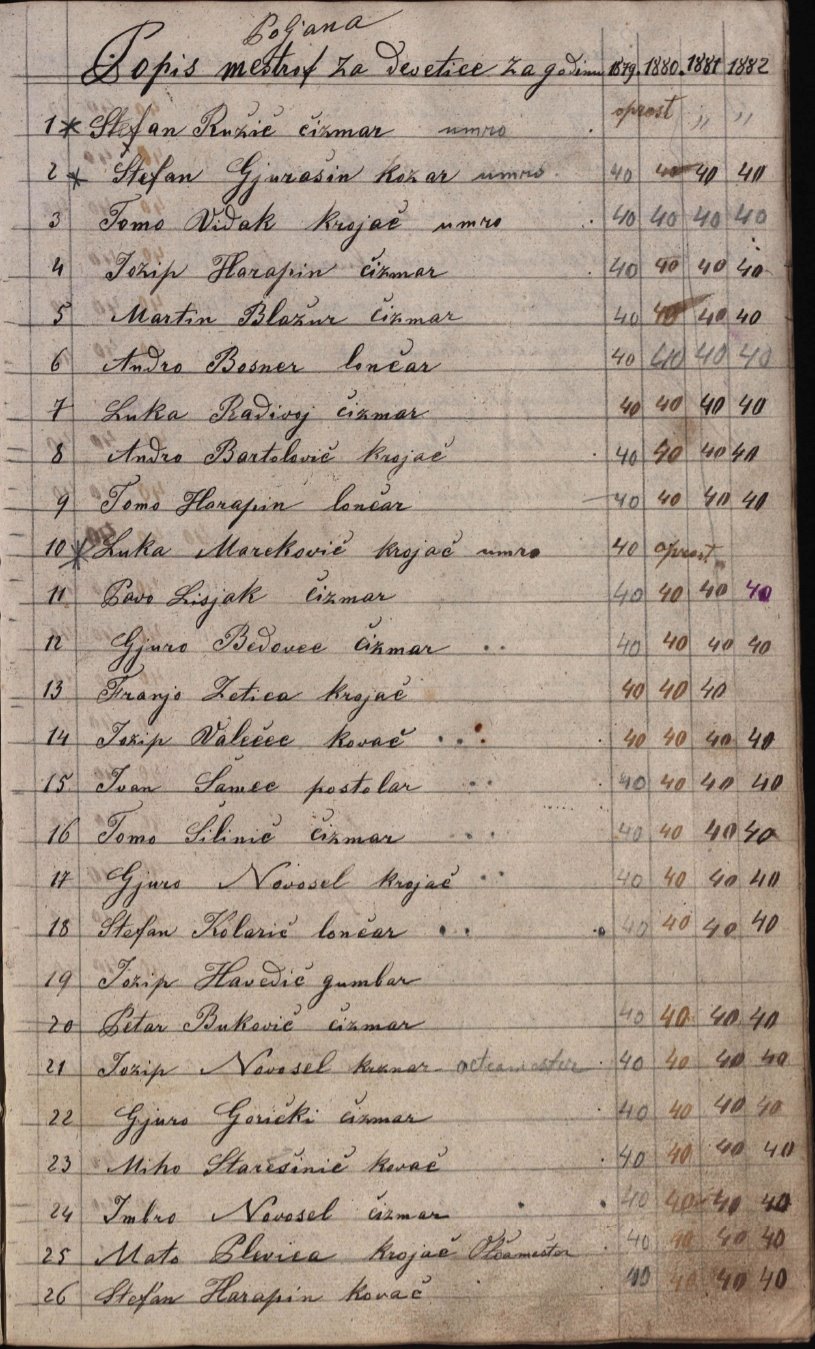 Poljana
Popis meštrof za devetice za godinu 1879. 1880. 1881 1882
1 * Stefan Ružič čizmar umro oprost " "
2 * Štefan Gjurašin kozar umro 40 40 40 40
3 Tomo Vidak krojač umro 40 40 40 40
4 Jozip Harapin čizmar 40 40 40 40
5 Martin Blažur čizmar 40 40 40 40
6 Andro Bosner lončar 40 40 40 40
7 Luka Radivoj čizmar 40 40 40 40
8 Andro Bartolovič krojač 40 40 40 40
9 Tomo Harapin lončar 40 40 40 40
10 * Luka Marekovič krojač umro 40 oprost "
11 Pavo Lisjak čizmar 40 40 40 40
12 Gjuro Bedovec čizmar 40 40 40 40
13 Franjo Zetica krojač 40 40 40
14 Jozip Valečec kovač 40 40 40 40
15 Ivan Šamec postolar 40 40 40 40
16 Tomo Šilinič čizmar 40 40 40 40
17 Gjuro Novosel krojač 40 40 40 40
18 Stefan Kolarič lončar 40 40 40 40
19 Jozip Havedič gumbar
20 Petar Bukovič čizmar 40 40 40 40
21 Jozip Novosel krznar 40 40 40 40
22 Gjuro Gorički čizmar 40 40 40 40
23 Miho Starešinič kovač 40 40 40 40
24 Imbro Novosel čizmar 40 40 40 40
25 Mato Plevica krojač Otčamešter 40 40 40 40
26 Stefan Harapin kovač 40 40 40 40